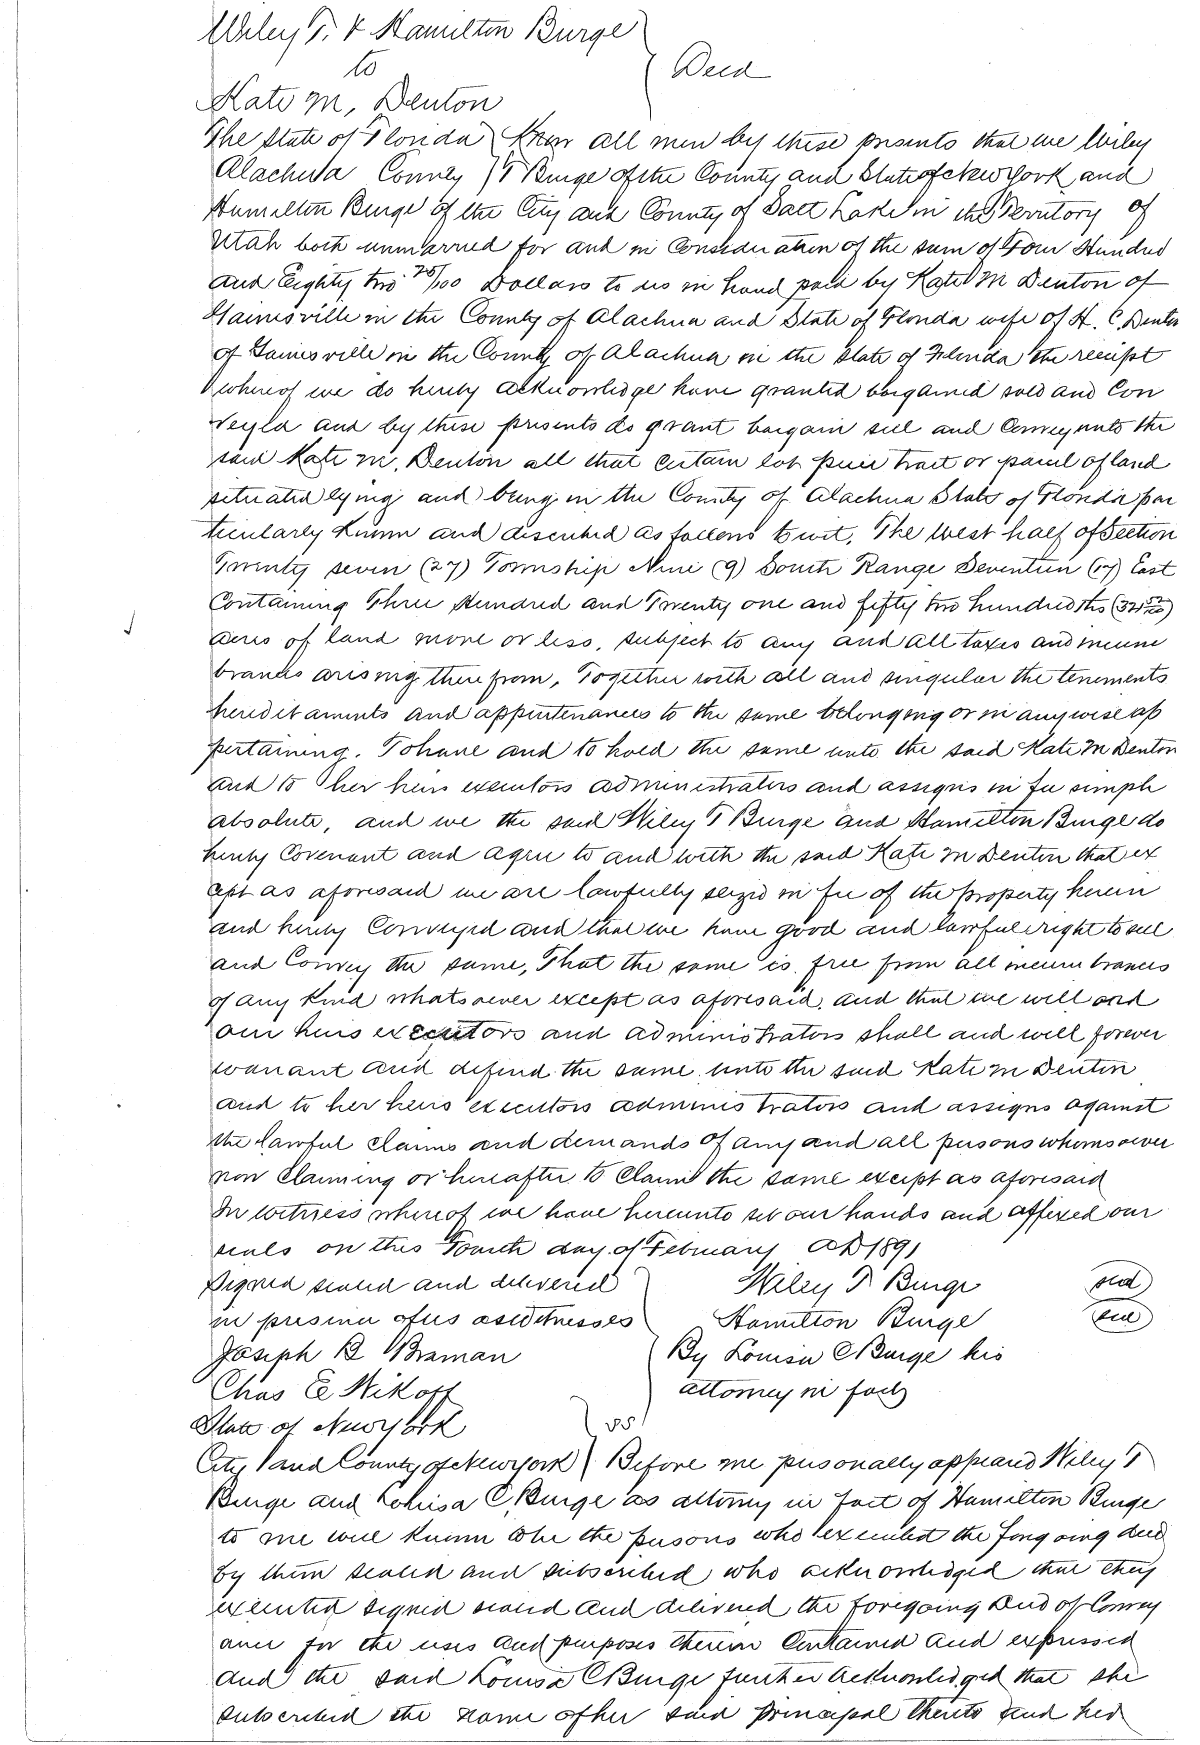 Wiley T. & Hamilton Burge
to
Deed
Kate M. Denton
The State of Florida Know all men by these presents that we Wiley
Alachua County T Burge of the County and State of New York and
Hamilton Burge of the City and County of Salt Lake in the Territory of
Utah both unmarried for and in Consideration of the sum of Four Hundred
and Eighty two 28/100 Dollars to us in hand paid by Kate M Denton of
Gainesville in the County of Alachua and State of Florida wife of H. C. Denton
of Gainesville in the County of Alachua in the State of Florida the receipt
whereof we do hereby acknowledge have granted bargained sold and Con
veyed and by these presents do grant bargain sell and Convey unto the
said Kate M. Denton all that certain lot piece tract or parcel of land
situated lying and being in the County of Alachua State of Florida par
ticularly known and described as follows to wit. The West half of Section
Twenty seven (27) Township Nine (9) South Range Seventeen (17) East
Containing Three Hundred and Twenty one and fifty two hundredths (321 52/100)
acres of land more or less, subject to any and all taxes and incum
brances arising therefrom, Together with all and singular the tenements
hereditaments and appurtenances to the same belonging or in anywise ap
pertaining. To have and to hold the same unto the said Kate M Denton
and to her heirs executors administrators and assigns in fee simple
absolute, and we the said Wiley T Burge and Hamilton Burge do
hereby Covenant and agree to and with the said Kate M Denton that ex
cept as aforesaid we are lawfully seized in fee of the property herein
and hereby Conveyed and that we have good and lawful right to sell
and Convey the same, That the same is free from all incumbrances
of any kind whatsoever except as aforesaid, and that we will and
our heirs executors and administrators shall and will forever
warrant and defend the same unto the said Kate M Denton
and to her heirs executors administrators and assigns against
the lawful claims and demands of any and all persons whomsoever
now Claiming or hereafter to Claim the same except as aforesaid
In witness whereof we have hereunto set our hands and affixed our
seals on this Fourth day of February AD 1891
Signed sealed and delivered Wiley T Burge seal
in presence of us as witnesses Hamilton Burge seal
Joseph B Braman By Louisa C Burge his
Chas E Wikoff attorney in fact
State of New York ss
City and County of New York Before me personally appeared Wiley T
Burge and Louisa C. Burge as attorney in fact of Hamilton Burge
to me well known to be the persons who executed the foregoing deed
by them sealed and subscribed who acknowledged that they
executed signed sealed and delivered the foregoing Deed of Convey
ance for the uses and purposes therein Contained and expressed
and the said Louisa C Burge further acknowledged that she
subscribed the name of her said principal thereto and her